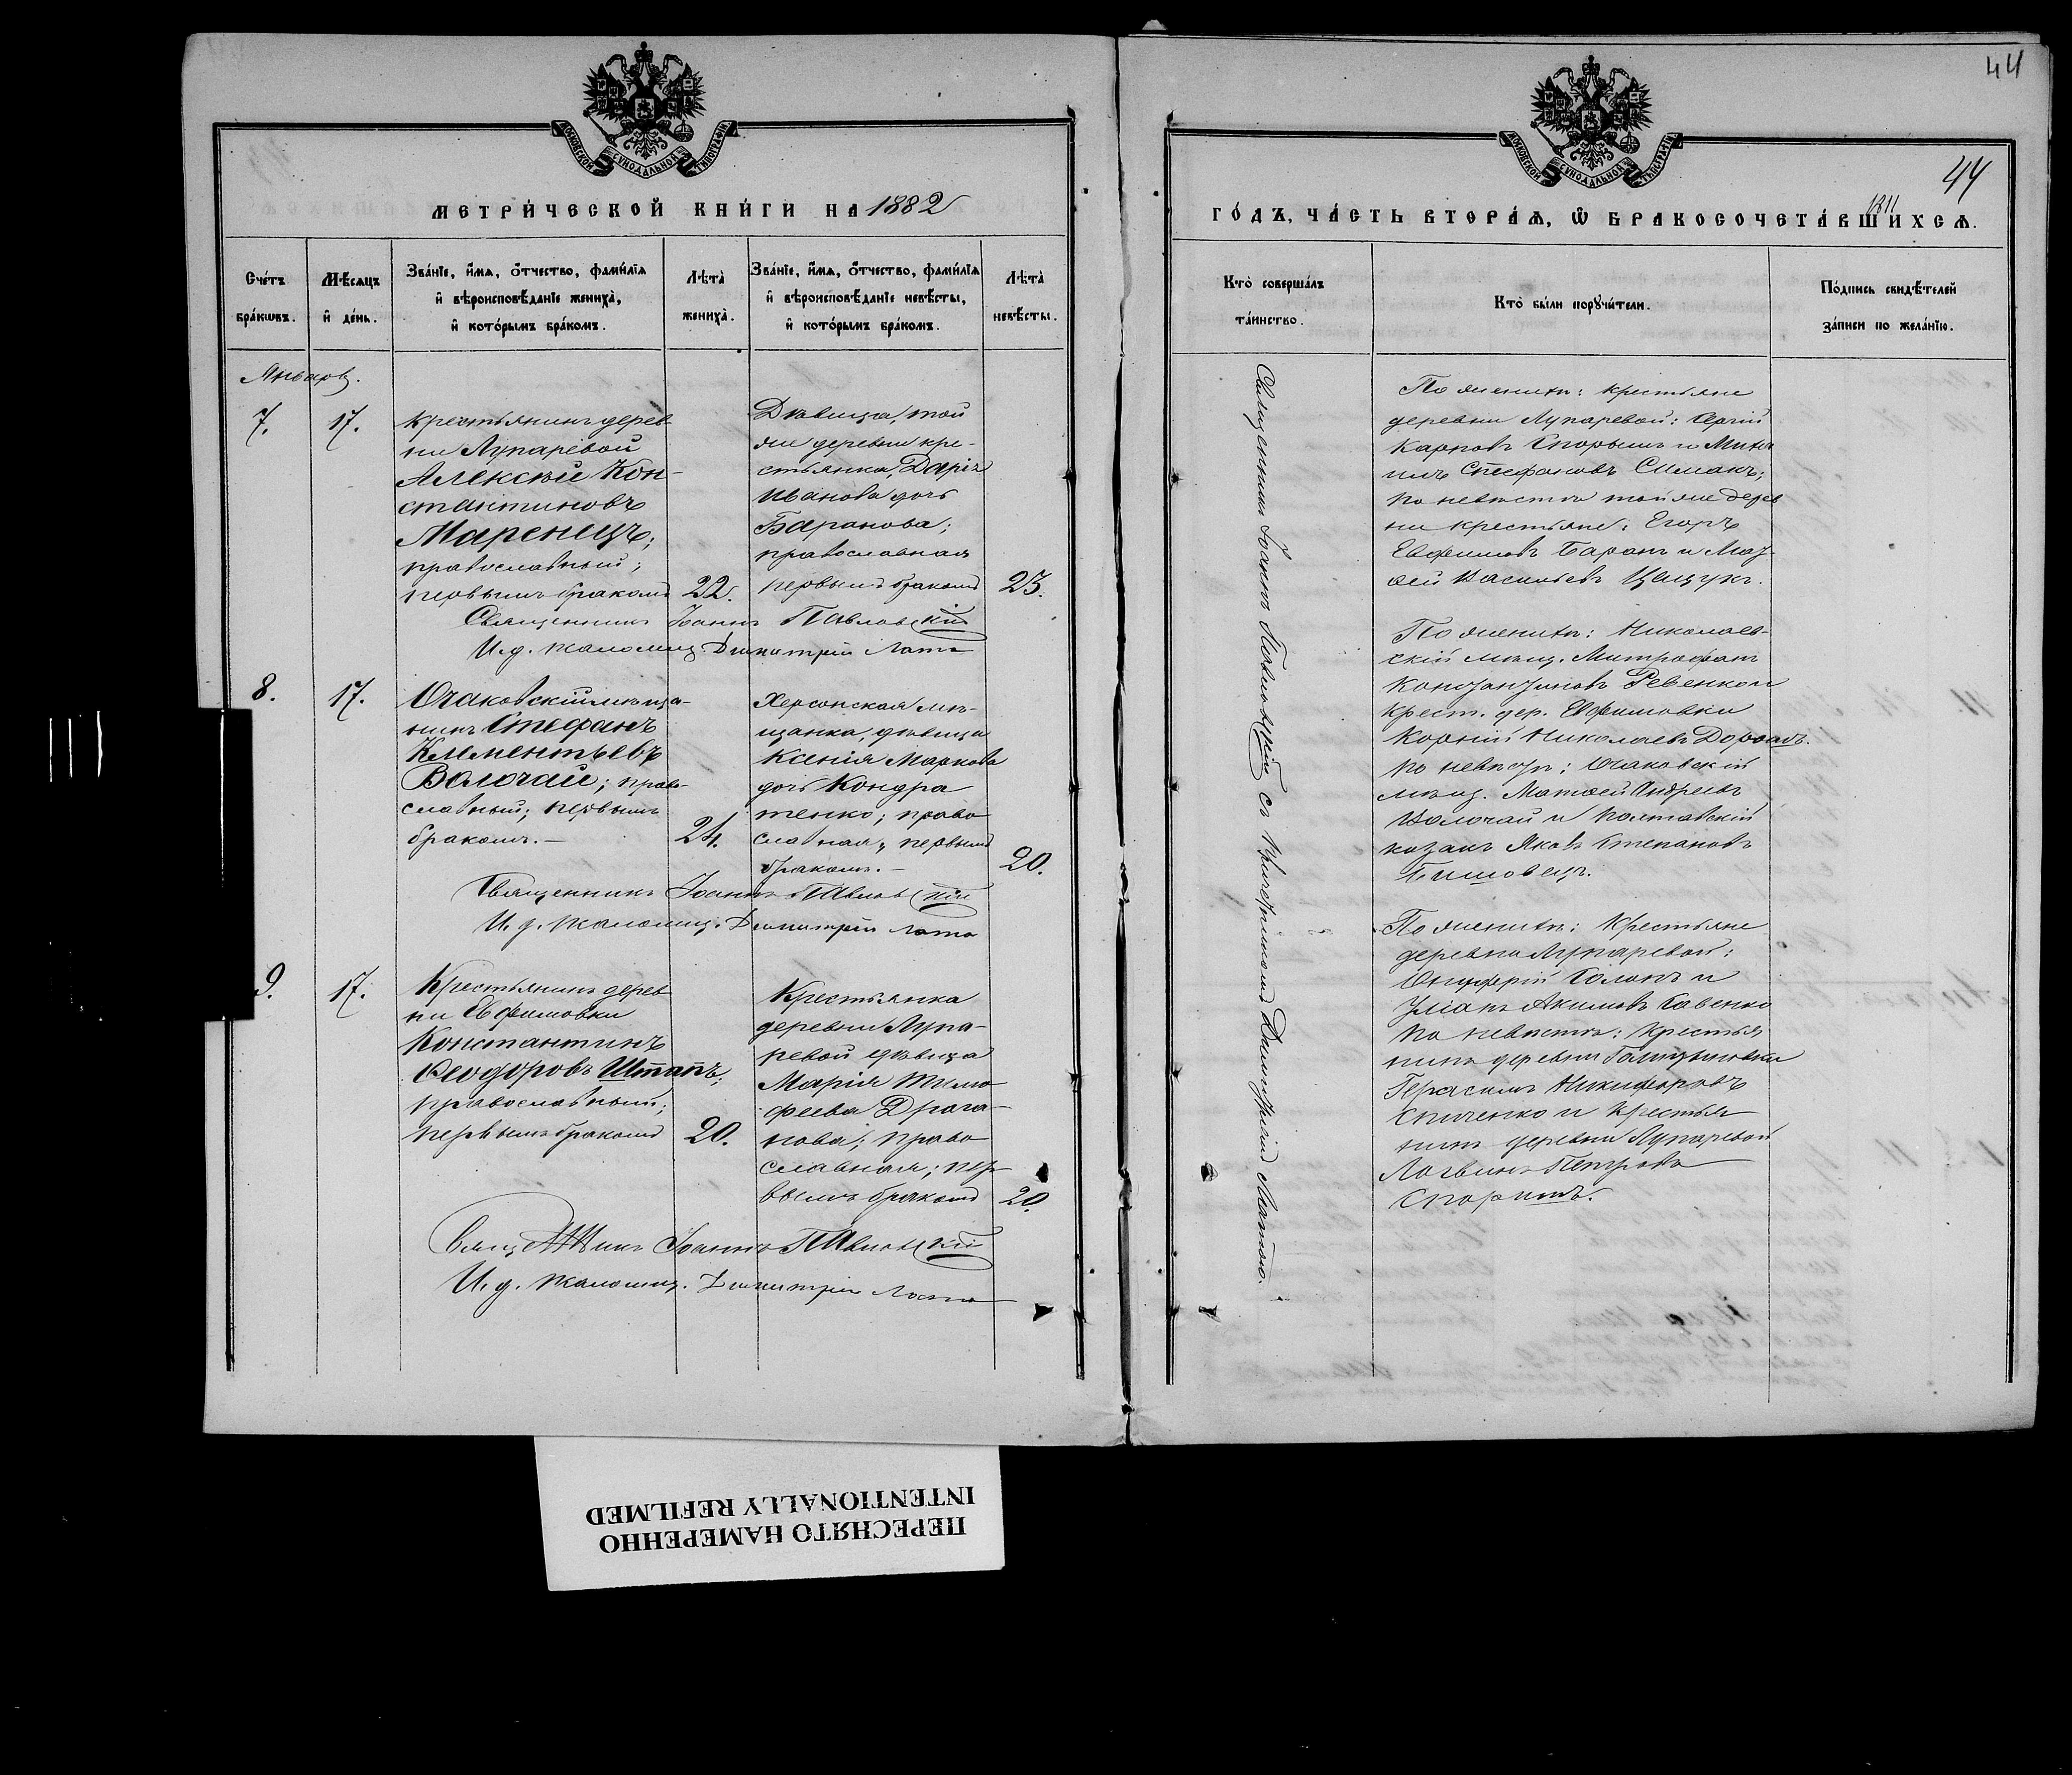 44
МОСКОВСКОЙ СѴНОДАЛЬНОЙ ТИПОГРАФІИ
МЕТРИ́ЧЕСКОЙ КНИ́ГИ НА 1882
Сче́тъ бра́ковъ.
Мѣ́сяцъ и҆ де́нь.
Зва́нїе, и҆́мѧ, ѻ҆́тчество, фами́лїѧ
и҆ вѣроисповѣ́данїе жениха̀,
и҆ кото́рымъ бра́комъ.
Лѣта̀ жениха̀.
Зва́нїе, и҆́мѧ, ѻ҆́тчество, фами́лїѧ
и҆ вѣроисповѣ́данїе невѣ́сты,
и҆ кото́рымъ бра́комъ.
Лѣта̀ невѣ́сты.
Январь.
7.
17.
крестьянинъ дерев-
ни Лупаревой
Алексѣй Кон-
стантиновъ
Маренецъ;
православный;
первымъ бракомъ
22.
Дѣвица, той
же деревни кре-
стьянка, Дарія
Иванова дочь
Баранова;
православная
первымъ бракомъ
23.
Священникъ Іоаннъ Павловскій
И. д. псаломщ. Димитрій Лото
8.
17.
Очаковскій мѣща-
нинъ Стефанъ
Климентьевъ
Волочай; право-
славный; первымъ
бракомъ.-
24.
Херсонская мѣ-
щанка, дѣвица
Ксенія Маркова
дочь Кондра
тенко; право
славная; первымъ
бракомъ.-
20.
Священникъ Іоаннъ Павловскій
И. д. псаломщ. Димитрій Лото
9.
17.
Крестьянинъ дерев
ни Евфимовки
Константинъ
Ѳеодоровъ Штапъ;
православный;
первымъ бракомъ
20.
Крестьянка
деревни Лупа-
ревой дѣвица
Марія Тимо
феева Драга-
нова; право
славная; пер
вымъ бракомъ
20.
Священникъ Іоаннъ Павловскій
И. д. псаломщ. Димитрій Лото
44
1811
МОСКОВСКОЙ СѴНОДАЛЬНОЙ ТИПОГРАФІИ
ГО́ДЪ, ЧА́СТЬ ВТОРА́Ѧ, Ѡ҆ БРАКОСОЧЕТА́ВШИХСѦ.
Кто̀ соверша́лъ
та́инство.
Кто̀ бы́ли поручи́тели.
По́дпись свидѣ́телей
за́писи по жела́нїю.
Священникъ Іоаннъ Павловскій съ причетникомъ Димитріемъ Лотою.
По женихѣ: крестьяне
деревни Лупаревой: Сергій
Карповъ Спорышъ и Миха
илъ Стефановъ Симакъ;
по невѣстѣ той же дерев
ни крестьяне: Егоръ
Евфимовъ Баранъ и Мат
ѳей Васильевъ Цащукъ.
По женихѣ: Николаев-
скій мѣщ. Митрофанъ
Константиновъ Ревенко и
крест. дер. Евфимовки
Корній Николаевъ
по невѣстѣ: Очаковскій
мѣщ. Матѳей Андреевъ
Волочай и Полтавскій
козакъ Яковъ Степановъ
По женихѣ: Крестьяне
деревни Лупаревой:
Онуфрій Голокъ и
Уліанъ Акимовъ Савенко
по невѣстѣ: крестья
нинъ деревни
Герасимъ Никифоровъ
и крестья
нинъ деревни Лупаревой
Логвинъ Петровъ
Спорышъ.
ПЕРЕСНЯТО НАМЕРЕННО
INTENTIONALLY REFILMED